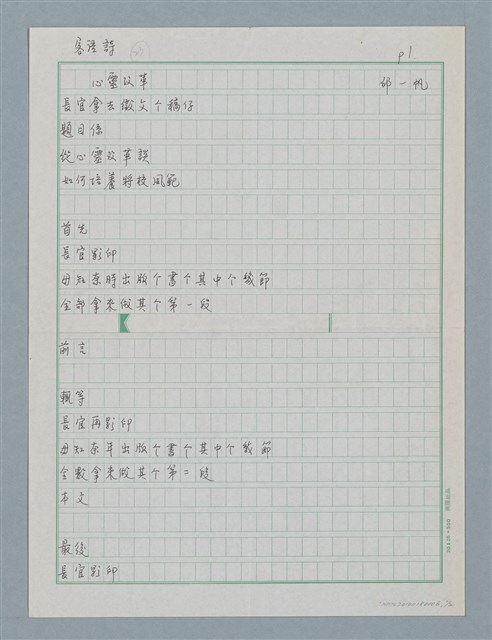 客語詩
p1.
心靈改革 邱一帆
長官拿去做文个稿仔
題目係
從心靈改革談
如何培養將校風範
首先
長官影印
毋知奈時出版个書个其中个幾節
全部拿來做其个第一段
前言
輒等
長官再影印
毋知奈年出版个書个其中个幾節
全數拿來做其个第二段
本文
最後
長官影印